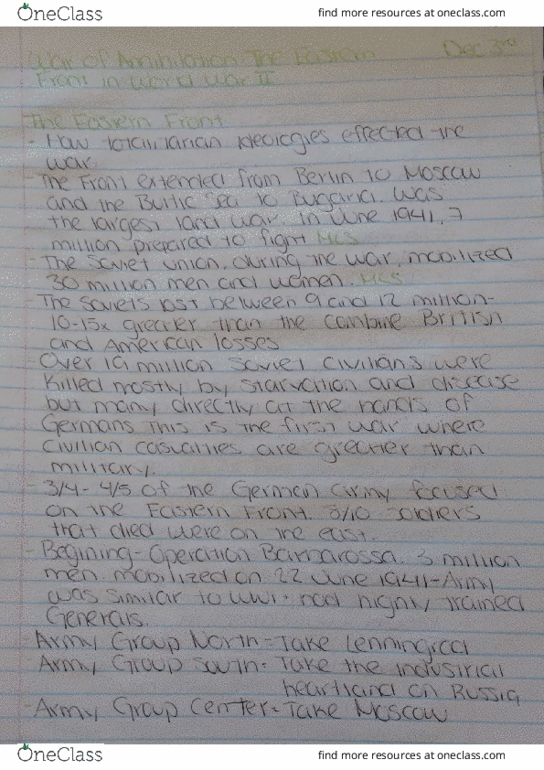 OneClass
find more resources at oneclass.com
War of Annihilation The Eastern Dec 3rd
Front in World War II
The Eastern Front
- How totalitarian ideologies effected the
war.
- The Front extended from Berlin to Moscow
and the Baltic Sea to Bugaria. Was
the largest land war. In June 1941, 7
million prepared to fight MCS
- The Soviet union, during the war, mobilized
30 million men and women. MCS
- The Soviets lost between 9 and 12 million-
10-15x greater than the combine British
and American losses
- Over 19 million Soviet civilians were
killed mostly by starvation and disease
but many directly at the hands of
Germans This is the first war where
civilian casualties are greater than
military.
- 3/4- 4/5 of the German army focused
on the Eastern Front. 8/10 soldiers
that died were on the east.
- Begining-Operation Barbarossa. 3 million
men mobilized on 22 June 1941-Army
was similar to WWI. had highly trained
Generals.
- Army Group North-Take Lenningrad
Army Group South- Take the industrial
heartland on Russia
- Army Group Center-Take Moscow
OneClass
find more resources at oneclass.com